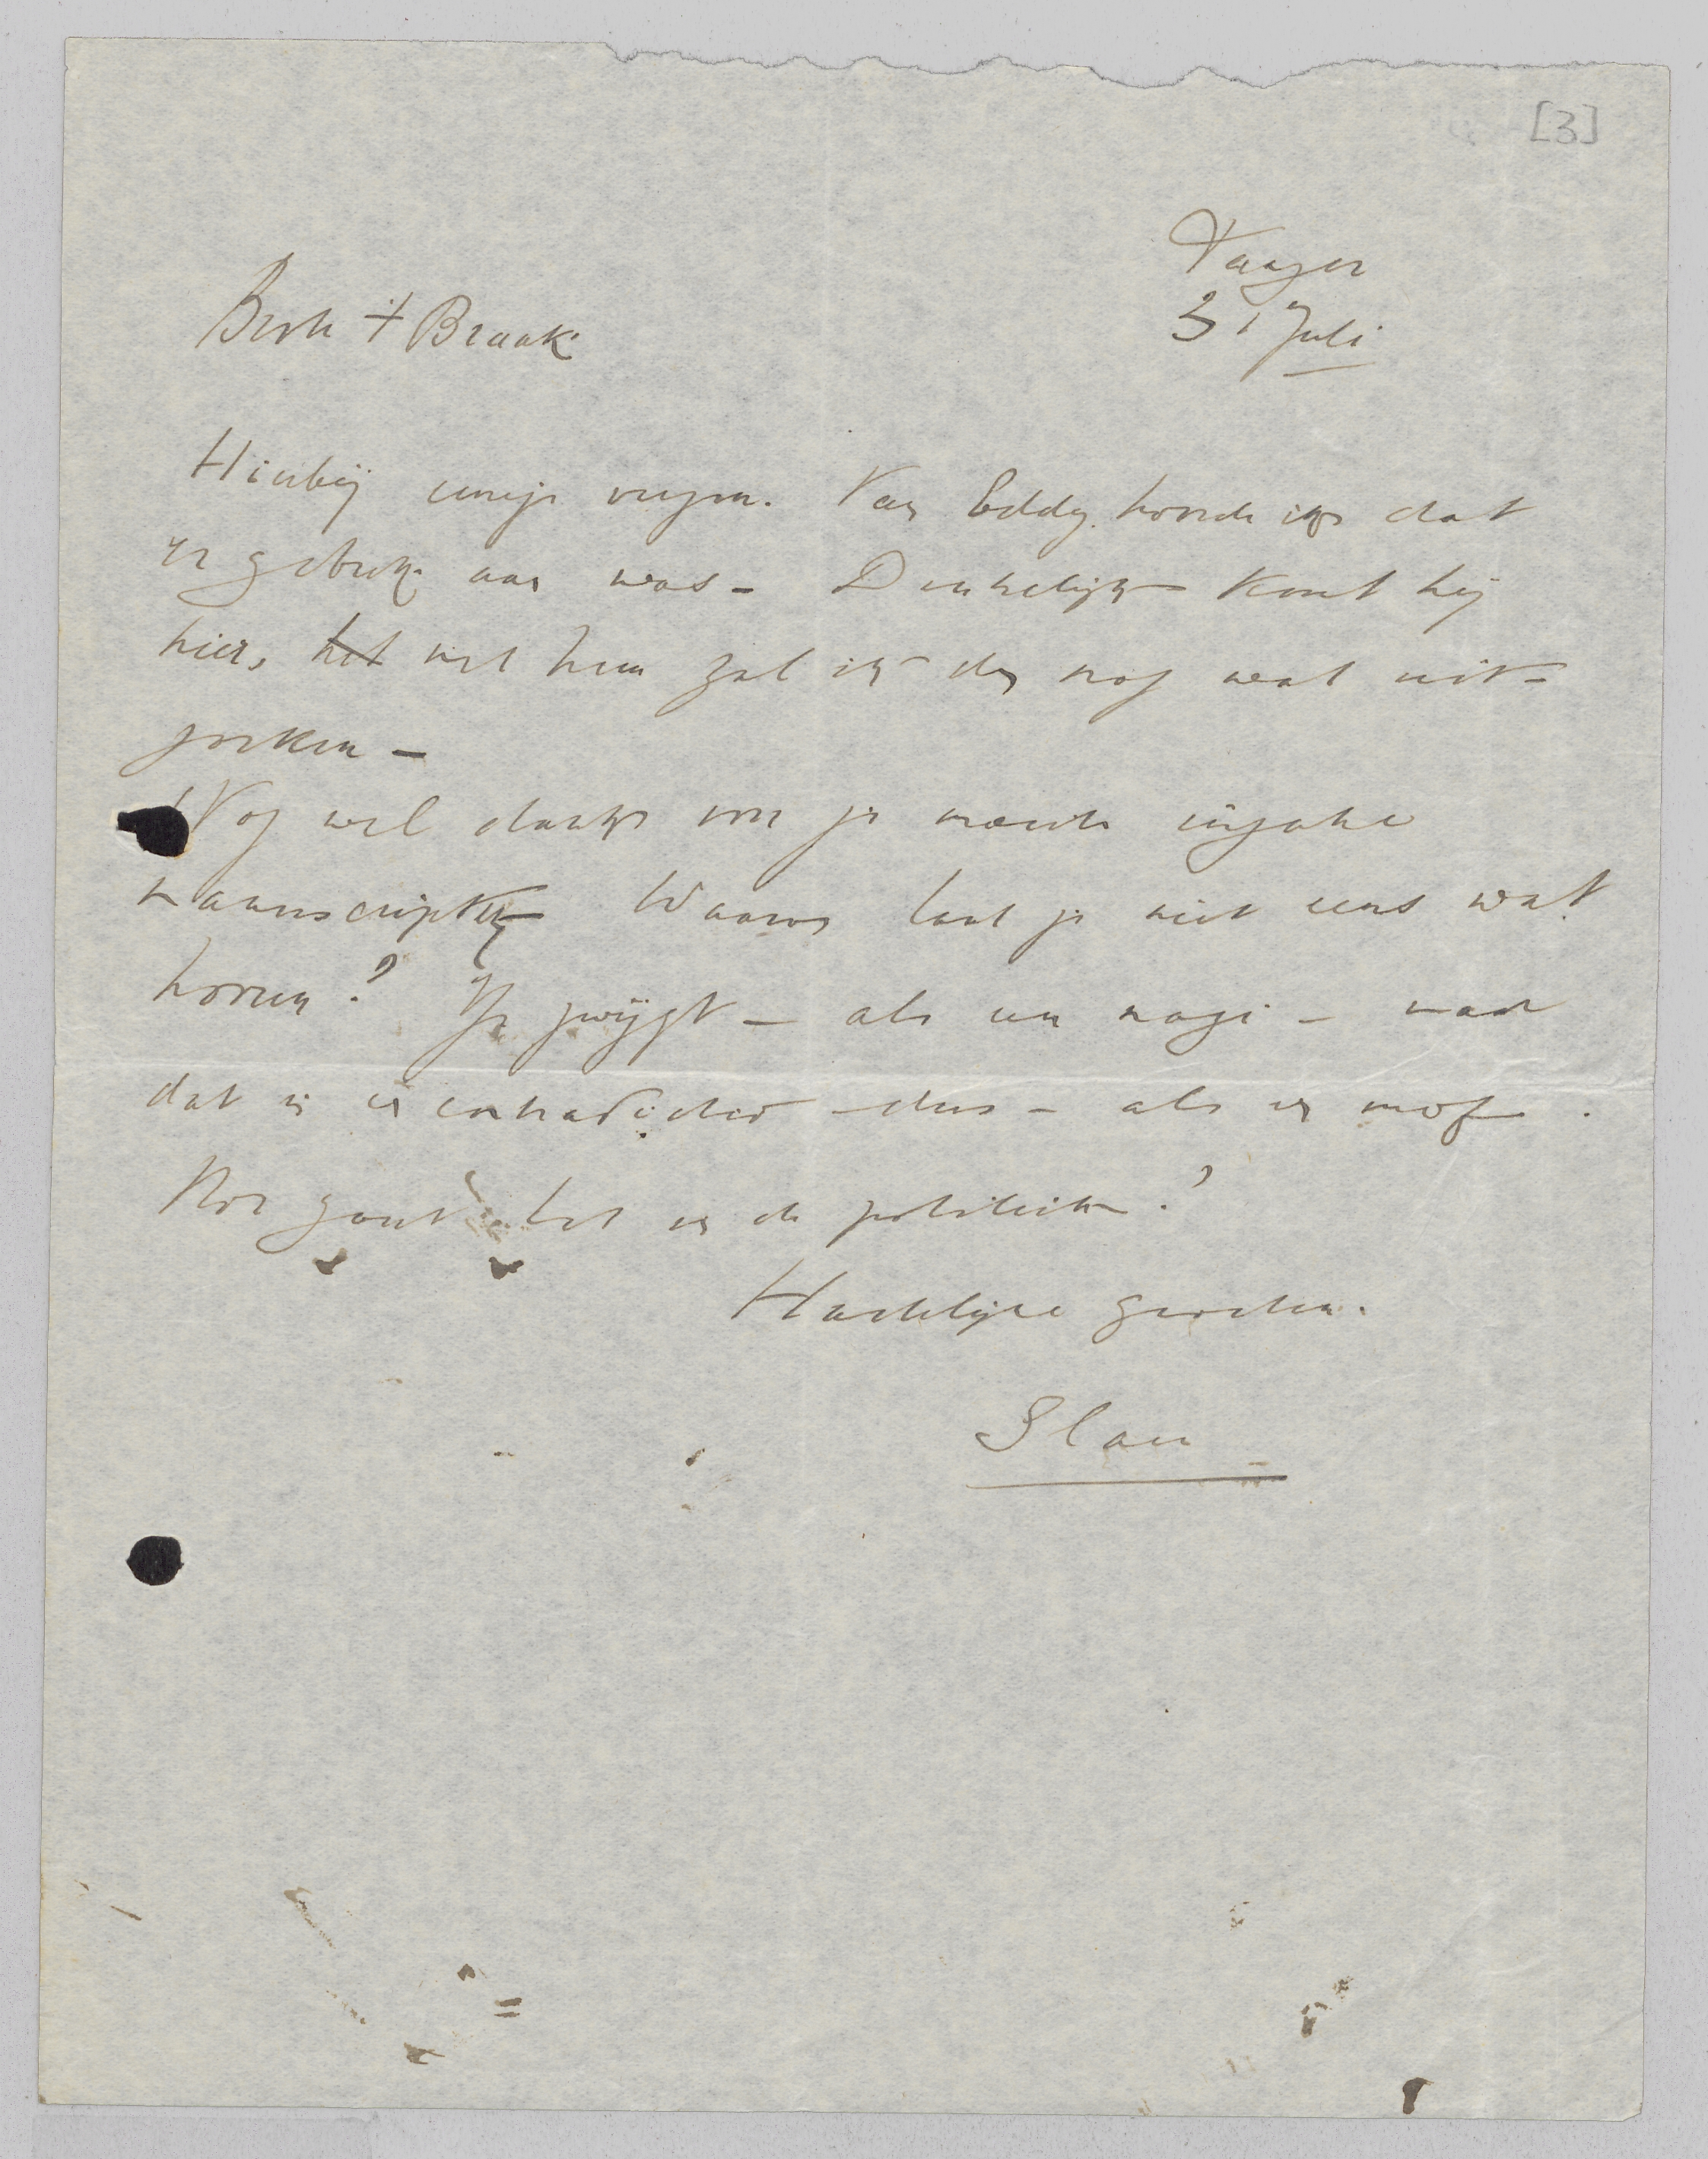 [3]
Tanger
31 Juli
Beste t Braak
Hierbij eenige verzen. Van Eddy hoorde ik dat
er gebrek aan was - Denkelijk komt hij
hier, het met hem zal ik dan nog wat uit-
zoeken -
Nog wel dank voor je moeite inzake
manuscripten Waarom laat je niet eens wat
hooren? Je zwijgt - als een nazi - maar
dat is contradictio - dus - als een mof.
Hoe gaat het in de politiek?
Hartelijke groeten.
Slau